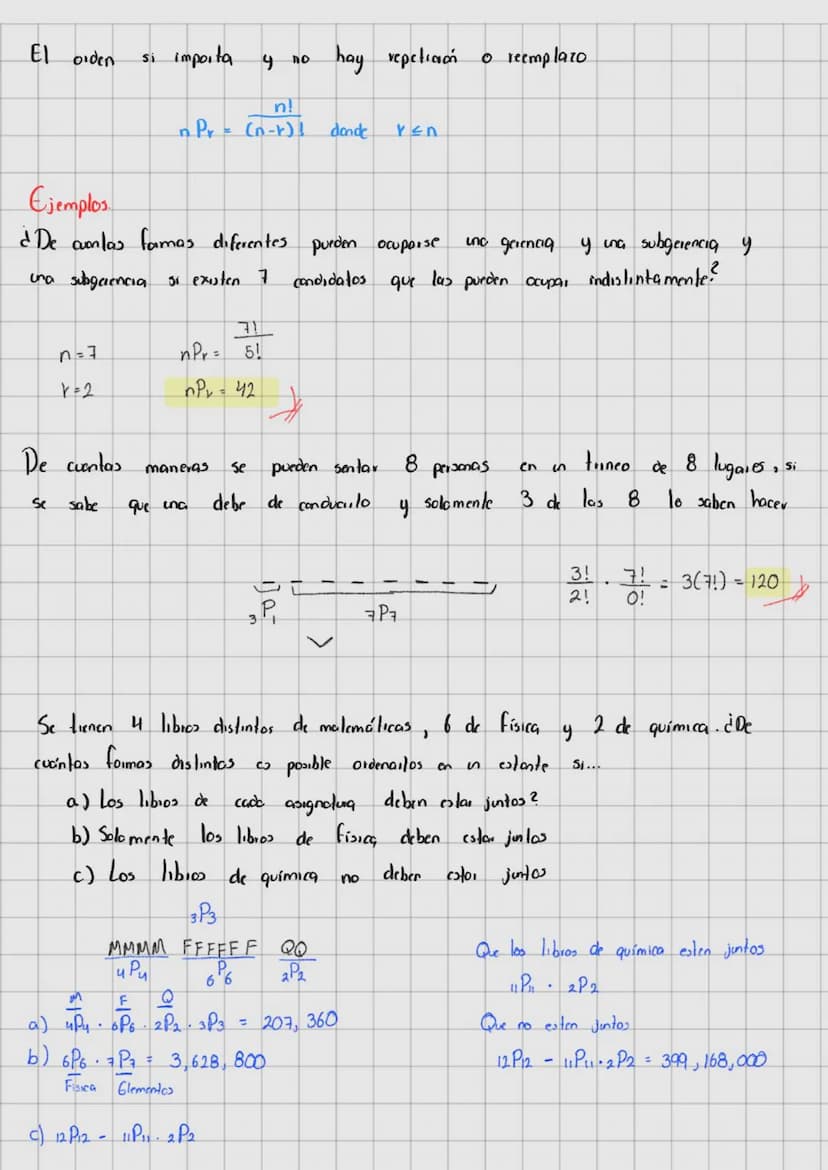 El orden si importa y no hay repetición o reemplazo
nPr = n!/(n-r)! donde r ≤ n
Ejemplos.
¿De cuantas formas diferentes pueden ocuparse una gerencia y una subgerencia y
una subgerencia si existen 7 candidatos que las pueden ocupar indistintamente?
n = 7 nPr = 7!/5!
r = 2 nPr = 42
De cuantas maneras se pueden sentar 8 personas en un trineo de 8 lugares, si
se sabe que una debe de conducirlo y solamente 3 de los 8 lo saben hacer
3!/2! · 7!/0! = 3(7!) = 120
3P1 7P7
Se tienen 4 libros distintos de matemáticas, 6 de física y 2 de química. ¿De
cuántas formas distintas es posible ordenarlos en un estante si...
a) Los libros de cada asignatura deben estar juntos?
b) Solamente los libros de física deben estar juntos
c) Los libros de química no deben estar juntos
3P3
MMMM FFFFFF QQ
4P4 6P6 2P2
Que los libros de química esten juntos
11P11 · 2P2
M F Q
a) 4P4 · 6P6 · 2P2 · 3P3 = 207,360
Que no esten juntos
b) 6P6 · 7P7 = 3,628,800
12P12 - 11P11 · 2P2 = 399,168,000
Física Elementos
c) 12P12 - 11P11 · 2P2